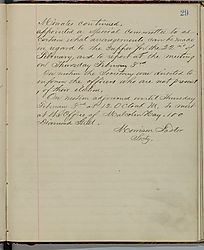 29
Minutes continued.
appointed a special committee to as-
certain what arrangements can be made
in regard to the Supper for the 22nd of
February, and to report at the meeting
on Thursday February 3rd.
On motion the Secretary was directed to
inform the officers who are not present
of their election.
On motion adjourned until Thursday
February 3rd at 12 O'clock M. to meet
at the Office of Malcolm Hay, 100
Diamond Street.
Secty.